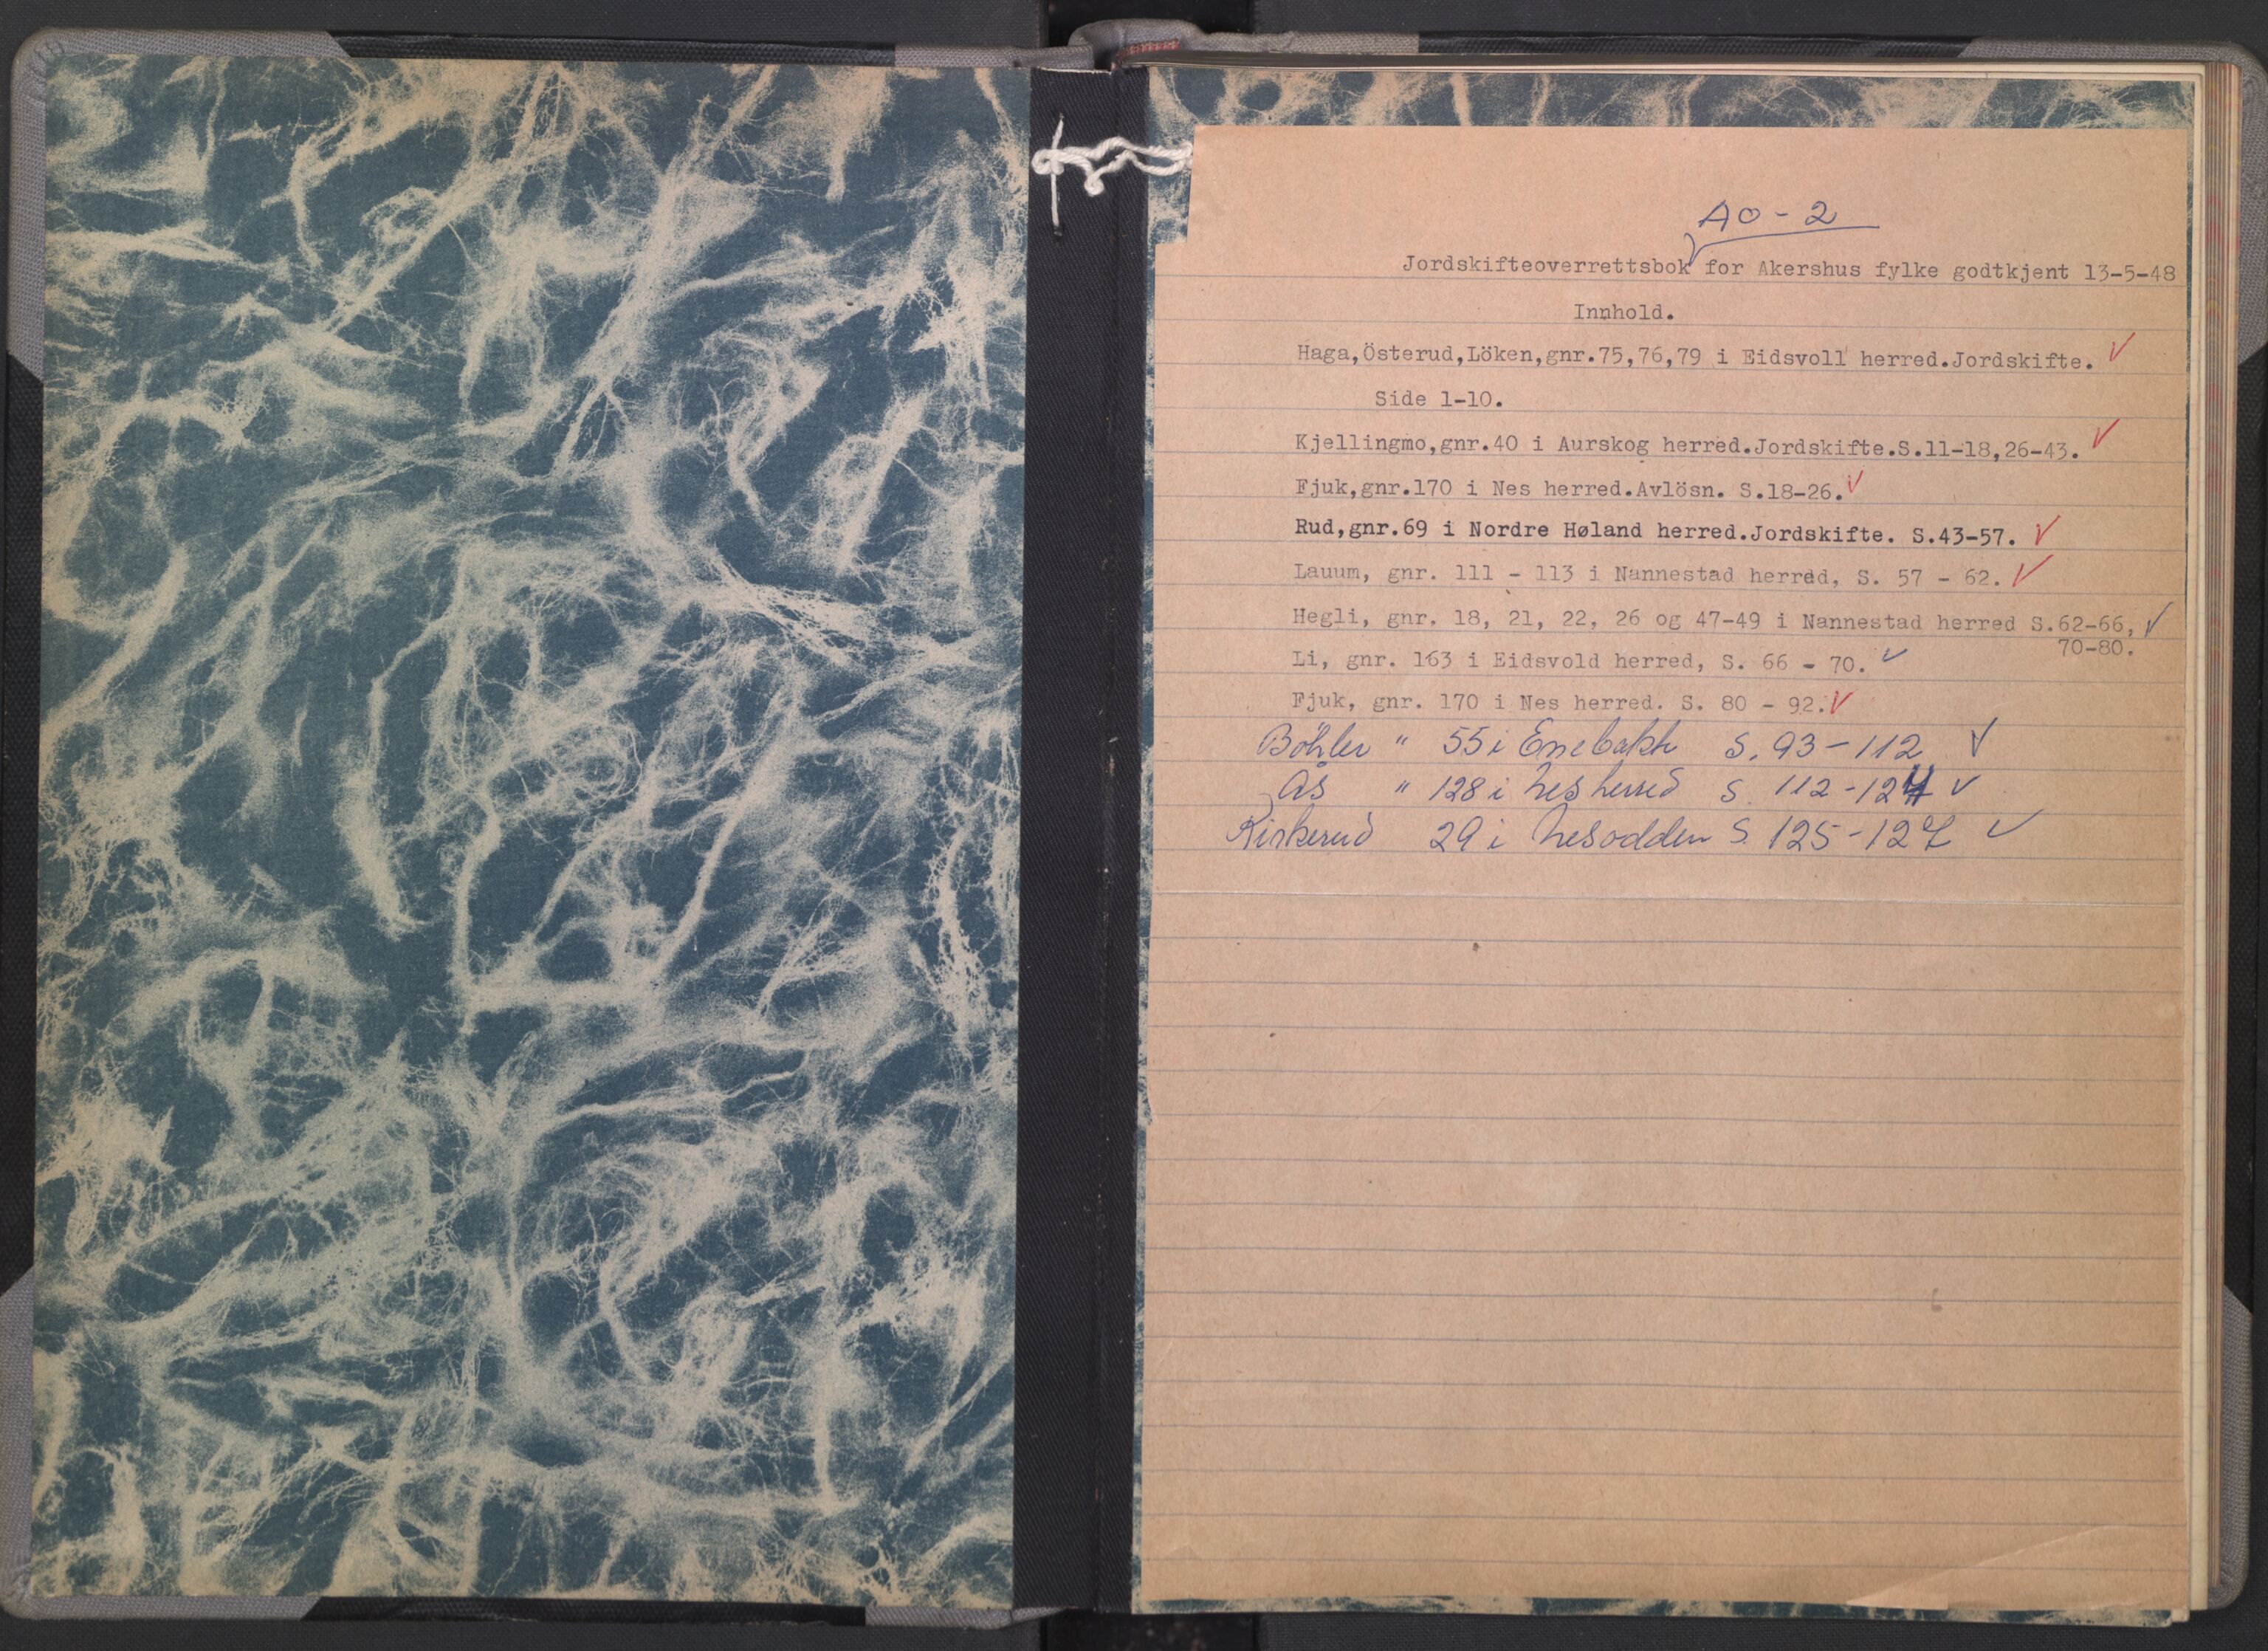 AO-2
Jordskifteoverrettsbok for Akershus fylke godtkjent 13-5-48
Innhold.
Haga,Österud,Löken,gnr.75,76,79 i Eidsvoll herred.Jordskifte. ✓
Side 1-10.
Kjellingmo,gnr.40 i Aurskog herred.Jordskifte.S.11-18,26-43. ✓
Fjuk,gnr.170 i Nes herred.Avlösn. S.18-26. ✓
Rud,gnr.69 i Nordre Høland herred.Jordskifte. S.43-57. ✓
Lauum, gnr. 111 - 113 i Nannestad herred, S. 57 - 62. ✓
Hegli, gnr. 18, 21, 22, 26 og 47-49 i Nannestad herred S.62-66, ✓
70-80.
Li, gnr. 163 i Eidsvold herred, S. 66 - 70. ✓
Fjuk, gnr. 170 i Nes herred. S. 80 - 92. ✓
Böhler " 55 i Enebakk S. 93-112 ✓
Ås " 128 i Nes herred S. 112-124 ✓
Kirkerud 29 i Nesodden S. 125-127 ✓